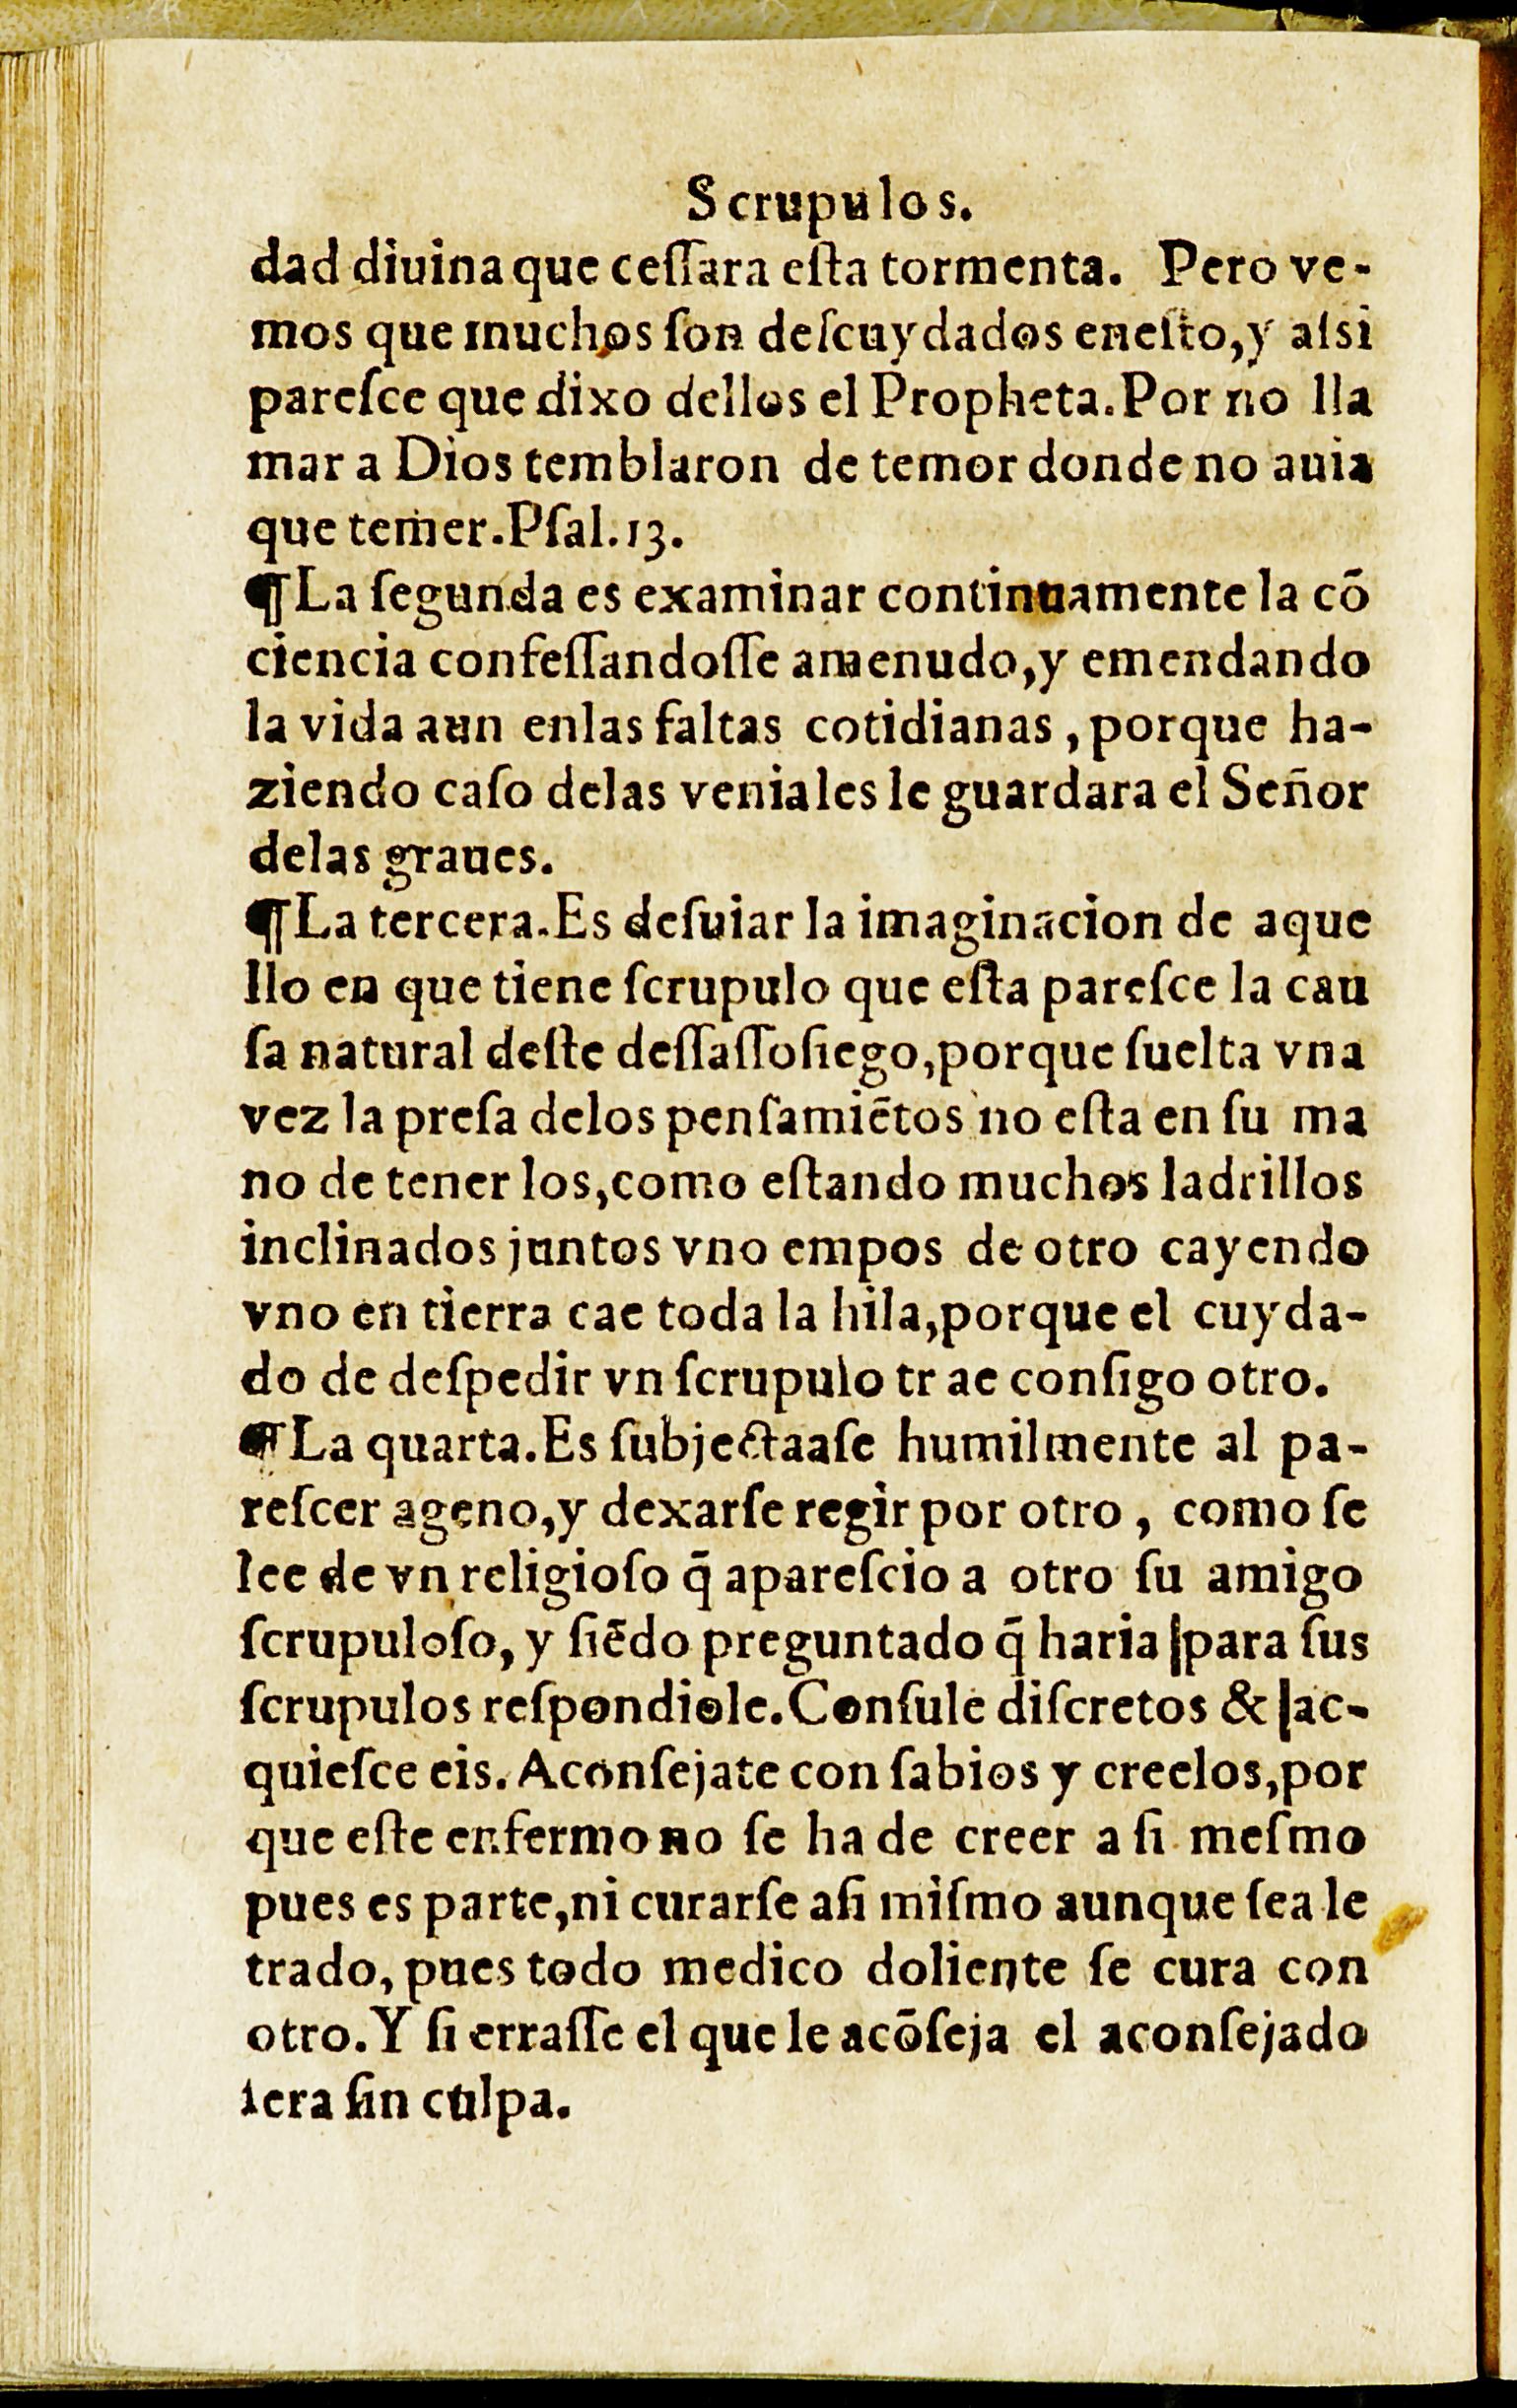 Scrupulos.
dad diuina que ceſſara eſta tormenta. Pero ve-
mos que muchos ſon deſcuydados eneſto, y aſsi
pareſce que dixo dellos el Propheta. Por no lla
mar a Dios temblaron de temor donde no auia
que temer. Pſal. 13.
¶ La ſegunda es examinar continuamente la cõ
ciencia confeſſandoſſe amenudo, y emendando
la vida aun enlas faltas cotidianas, porque ha-
ziendo caſo delas veniales le guardara el Señor
delas graues.
¶ La tercera. Es deſuiar la imaginacion de aque
llo en que tiene ſcrupulo que eſta pareſce la cau
ſa natural deſte deſſaſſoſiego, porque ſuelta vna
vez la preſa delos penſamiẽtos no eſta en ſu ma
no de tener los, como eſtando muchos ladrillos
inclinados juntos vno empos de otro cayendo
vno en tierra cae toda la hila, porque el cuyda-
do de deſpedir vn ſcrupulo trae conſigo otro.
¶ La quarta. Es ſubjectaaſe humilmente al pa-
reſcer ageno, y dexarſe regir por otro, como ſe
lee de vn religioſo q̃ apareſcio a otro ſu amigo
ſcrupuloſo, y ſiẽdo preguntado q̃ haria para ſus
ſcrupulos reſpondiole. Conſule diſcretos & ac-
quieſce eis. Aconſejate con ſabios y creelos, por
que eſte enfermo no ſe ha de creer a ſi meſmo
pues es parte, ni curarſe aſi miſmo aunque ſea le
trado, pues todo medico doliente ſe cura con
otro. Y ſi erraſſe el que le acõſeja el aconſejado
ſera ſin culpa.